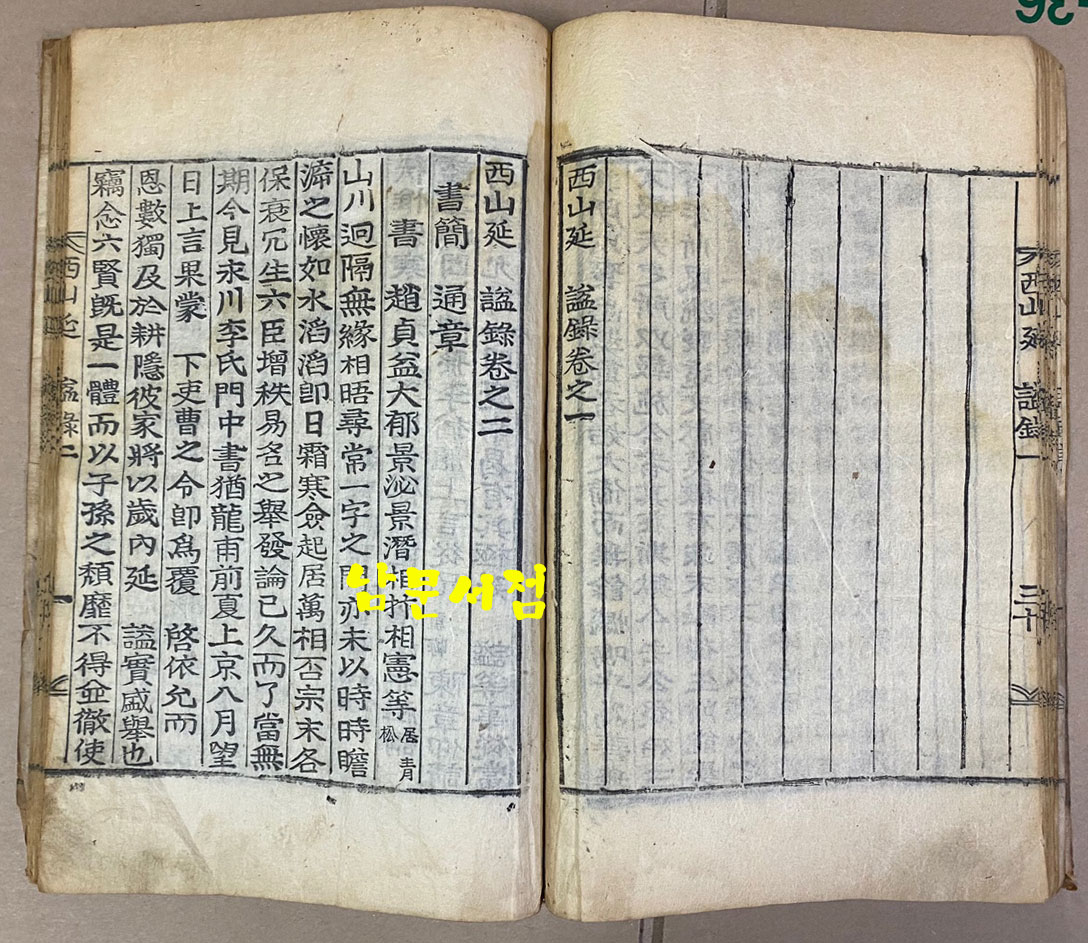 西山延 諡錄卷之一
西山延 諡錄一
三十
西山延 諡錄卷之二
書簡 通章
書 趙貞益大郁景泌景潛相抃相憲等 居青松
山川逈隔無緣相晤尋常一字之問亦未以時時瞻
溯之懷如水滔滔卽日霜寒僉起居萬相否宗末各
保衰冗生六臣增秩易名之擧發論已久而了當無
期今見永川李氏門中書猶龍甫前夏上京八月望
日上言果蒙 下吏曹之令卽爲覆 啓依允而
恩數獨及於耕隱彼家將以歲內延 諡實盛擧也
竊念六賢旣是一體而以子孫之頹靡不得並徹使
西山延 諡錄二
一
남문서점